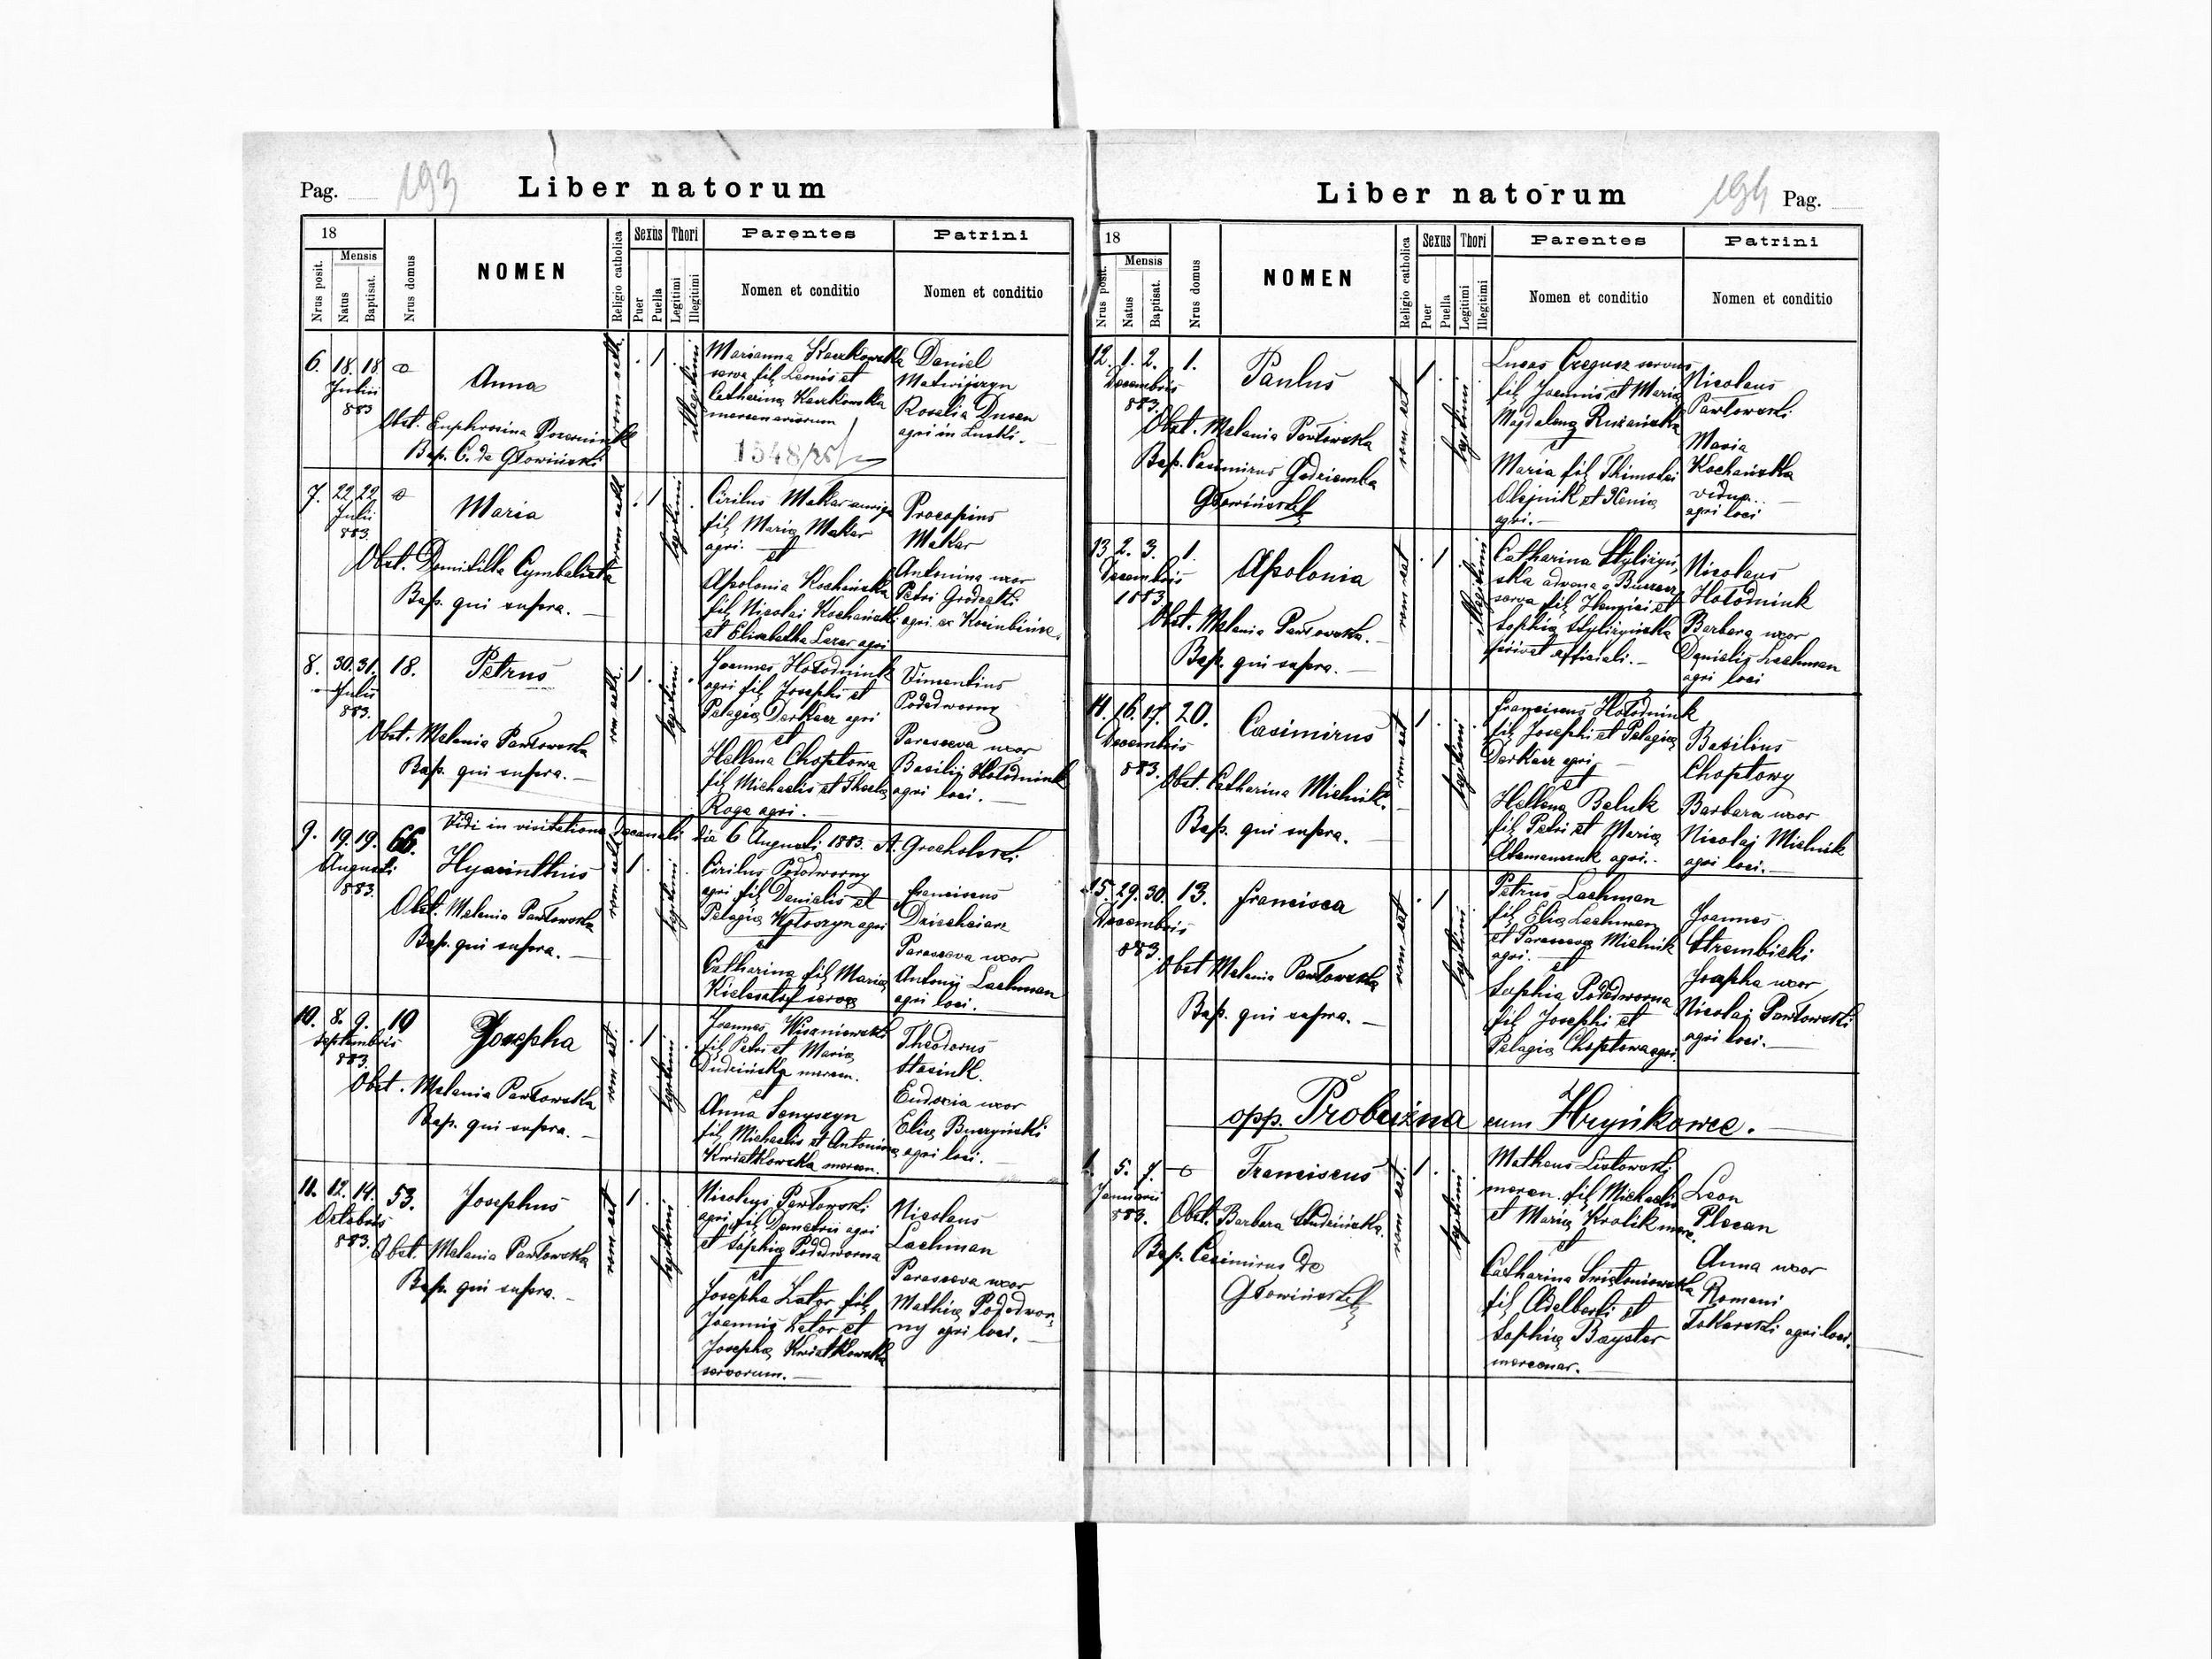 Pag. 193
Liber natorum
18
Mensis
Nrus posit.
Natus
Baptisat.
Nrus domus
NOMEN
Religio catholica
Sexus
Puer
Puella
Thori
Legitimi
Illegitimi
Parentes
Nomen et conditio
Patrini
Nomen et conditio
6. 18. 18
Julii
883
Anna
Obst. Euphrosina
Bap. C. de Głowiński
rom. cath.
1
illegitimi
Marianna Kaczkowska
serva fil. Leonis et
Catharina Kaczkowska
mercenariorum
1548/25
Daniel
Matwijszyn
Rosalia Dusen
agri in
7. 22 22
Julii
883.
Maria
Obst. Domitilla Cymbalista
Bap. qui supra.
rom. cath
1
legitimi
Cirilus Makar auriga
fil. Maria Makar
agri.
et
Apolonia Kochańska
fil. Nicolai Kochański
et Elisabetha Lazar agri
Procopius
Makar
Antonina uxor
Petri Grodecki
agri ex
8. 30. 31. 18.
Julii
883.
Petrus
Obst. Melania Pawłowska
Bap. qui supra.
rom. cath.
1
legitimi
Joannes Hołodniuk
agri fil. Josephi et
Pelagia Derkacz agri
et
Hellena Choptowa
fil. Michaelis et Thecla
Roga agri.
Vincentius
Podedworny
Parasceva uxor
Basilij Hołodniuk
agri loci.
Vidi in visitatione decanali die 6 Augusti 1883. A. Grocholski
9. 19. 19. 66.
Augusti
883.
Hyacinthus
Obst. Melania Pawłowska
Bap. qui supra.
rom. cath
1
legitimi
Cirilus Pododworny
agri fil. Danielis et
Pelagia Wołoszyn agri
et
Catharina fil. Maria
serva
Franciscus
Parasceva uxor
Antonij Lachman
agri loci.
10. 8. 9. 19
Septembris
883.
Josepha
Obst. Melania Pawłowska
Bap. qui supra.
rom. cat.
1
legitimi
Joannes Wisaniewski
fil. Petri et Maria
Dudzińska mercen.
et
Anna Senyszyn
fil. Michaelis et Antonina
Kwiatkowska mercen.
Theodorus
Stasiuk.
Eudoxia uxor
Elia Buczyński
agri loci.
11. 12. 14. 53.
Octobris
883.
Josephus
Obst. Melania Pawłowska
Bap. qui supra.
rom cat
1
legitimi
Nicolaus Pawłowski
agri fil. Demetrii agri
et Sophia Podedworna
et
Josepha Zator fil.
Joannis Zator et
Josepha Kwiatkowska
servorum.
Nicolaus
Lachman
Parasceva uxor
Mathia Pododwor-
ny agri loci.
Liber natorum
194 Pag.
18
Mensis
Nrus posit.
Natus
Baptisat.
Nrus domus
NOMEN
Religio catholica
Sexus
Puer
Puella
Thori
Legitimi
Illegitimi
Parentes
Nomen et conditio
Patrini
Nomen et conditio
12. 1. 2. 1.
Decembris
883.
Paulus
Obst. Melania Pawłowska
Bap. Casimirus Godziemba
Głowiński
rom cat
1
legitimi
Lucas servus
fil. Joannis et Maria
Magdalena
et
Maria fil. Thimothei
Olejnik et Xenia
agri.
Nicolaus
Pawłowski
Maria
Kochańska
vidua.
agri loci
13. 2. 3. 1.
Decembris
1883.
Apolonia
Obst. Melania Pawłowska.
Bap. qui supra.
rom cat
1
illegitimi
Catharina Styliżyń-
ska advena a
serva fil. Henrici et
Sophia Styliżyńska
privat officiali.
Nicolaus
Hołodniuk
Barbara uxor
Danielis Lachman
agri loci
14. 16. 17. 20.
Decembris
883.
Casimirus
Obst. Catharina Mielnik.
Bap. qui supra.
rom cat
1
legitimi
Franciscus Hołodniuk
fil. Josephi et Pelagia
Derkacz agri
et
Hellena Beluk
fil. Petri et Maria
Atamanczuk agri.
Basilius
Choptowy
Barbara uxor
Nicolaj Mielnik
agri loci.
15. 29. 30. 13.
Decembris
883.
Francisca
Obst Melania Pawłowska
Bap. qui supra.
rom cat
1
legitimi
Petrus Lachman
fil. Elia Lachman
et Parasceva Mielnik
agri.
et
Sophia Podedworna
fil. Josephi et
Pelagia Choptowa agri.
Joannes
Strembicki
Josepha uxor
Nicolaj Pawłowski
agri loci.
opp. Probużna cum Hryńkowce.
1. 5. 7.
Januarii
883.
Franciscus
Obst. Barbara Studzińska.
Bap. Casimirus de
Głowiński
rom cat.
1
legitimi
Matheus Listowski
mercen. fil. Michaelis
et Maria Krolik merc.
et
Catharina Świętoniowska
fil. Adelberti et
Sophia Bayster
mercenar.
Leon
Plecan
Anna uxor
Romani
Tokarski agri loci.